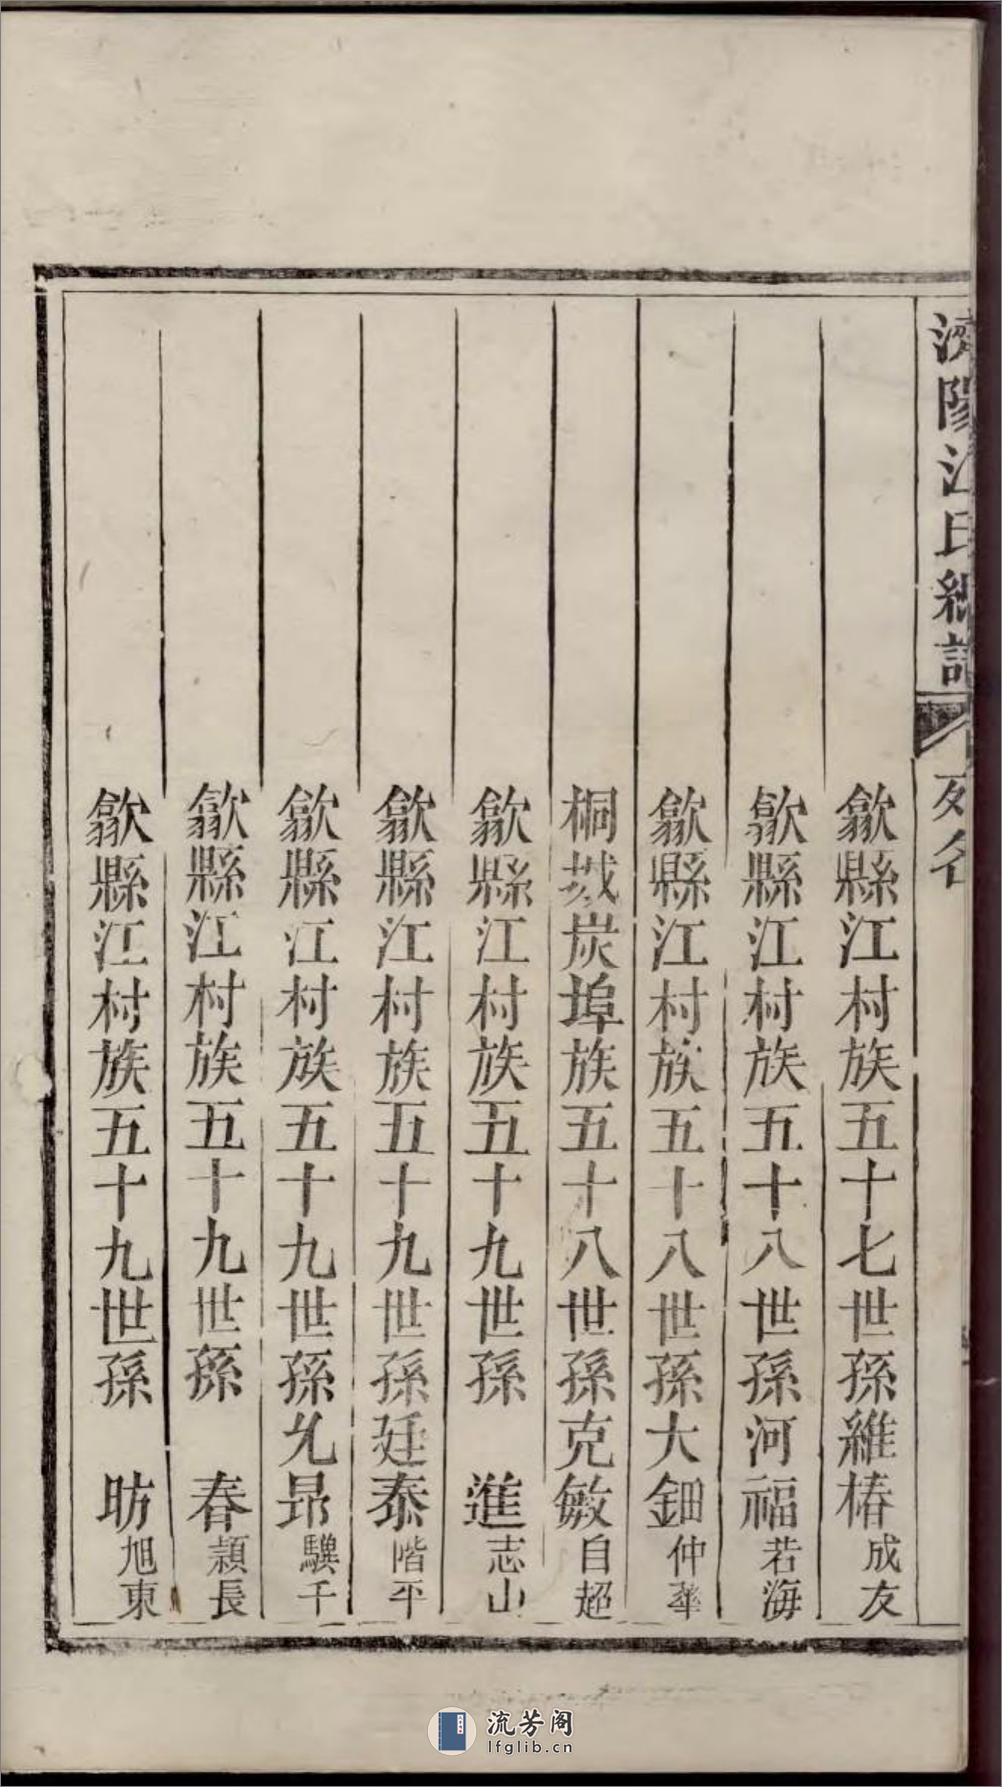 濟陽江氏統譜
列名
歙縣江村族五十七世孫維椿成友
歙縣江村族五十八世孫河福若海
歙縣江村族五十八世孫大鈿仲華
桐城炭埠族五十八世孫克敏自超
歙縣江村族五十九世孫進志山
歙縣江村族五十九世孫廷泰階平
歙縣江村族五十九世孫允昻驥千
歙縣江村族五十九世孫春潁長
歙縣江村族五十九世孫昉旭東
流芳阁
lfglib.cn